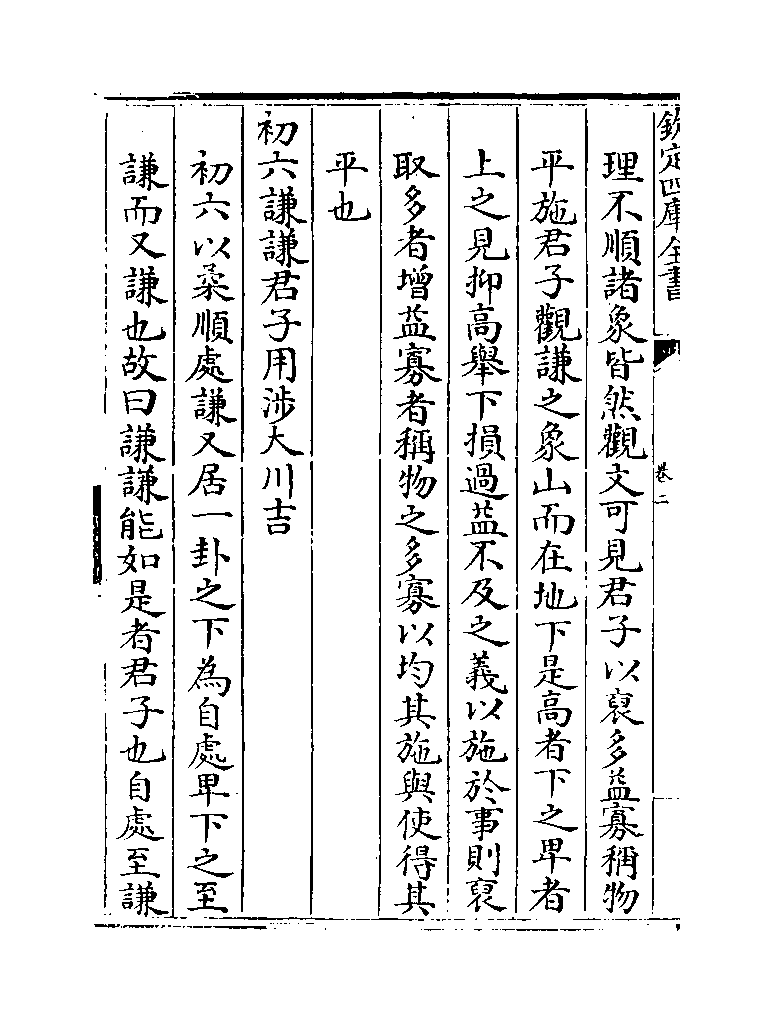 欽定四庫全書
卷二
理不順諸象皆然觀文可見君子以裒多益寡稱物
平施君子觀謙之象山而在地下是高者下之卑者
上之見抑高舉下損過益不及之義以施於事則裒
取多者增益寡者稱物之多寡以均其施與使得其
平也
初六謙謙君子用涉大川吉
初六以柔順處謙又居一卦之下為自處卑下之至
謙而又謙也故曰謙謙能如是者君子也自處至謙